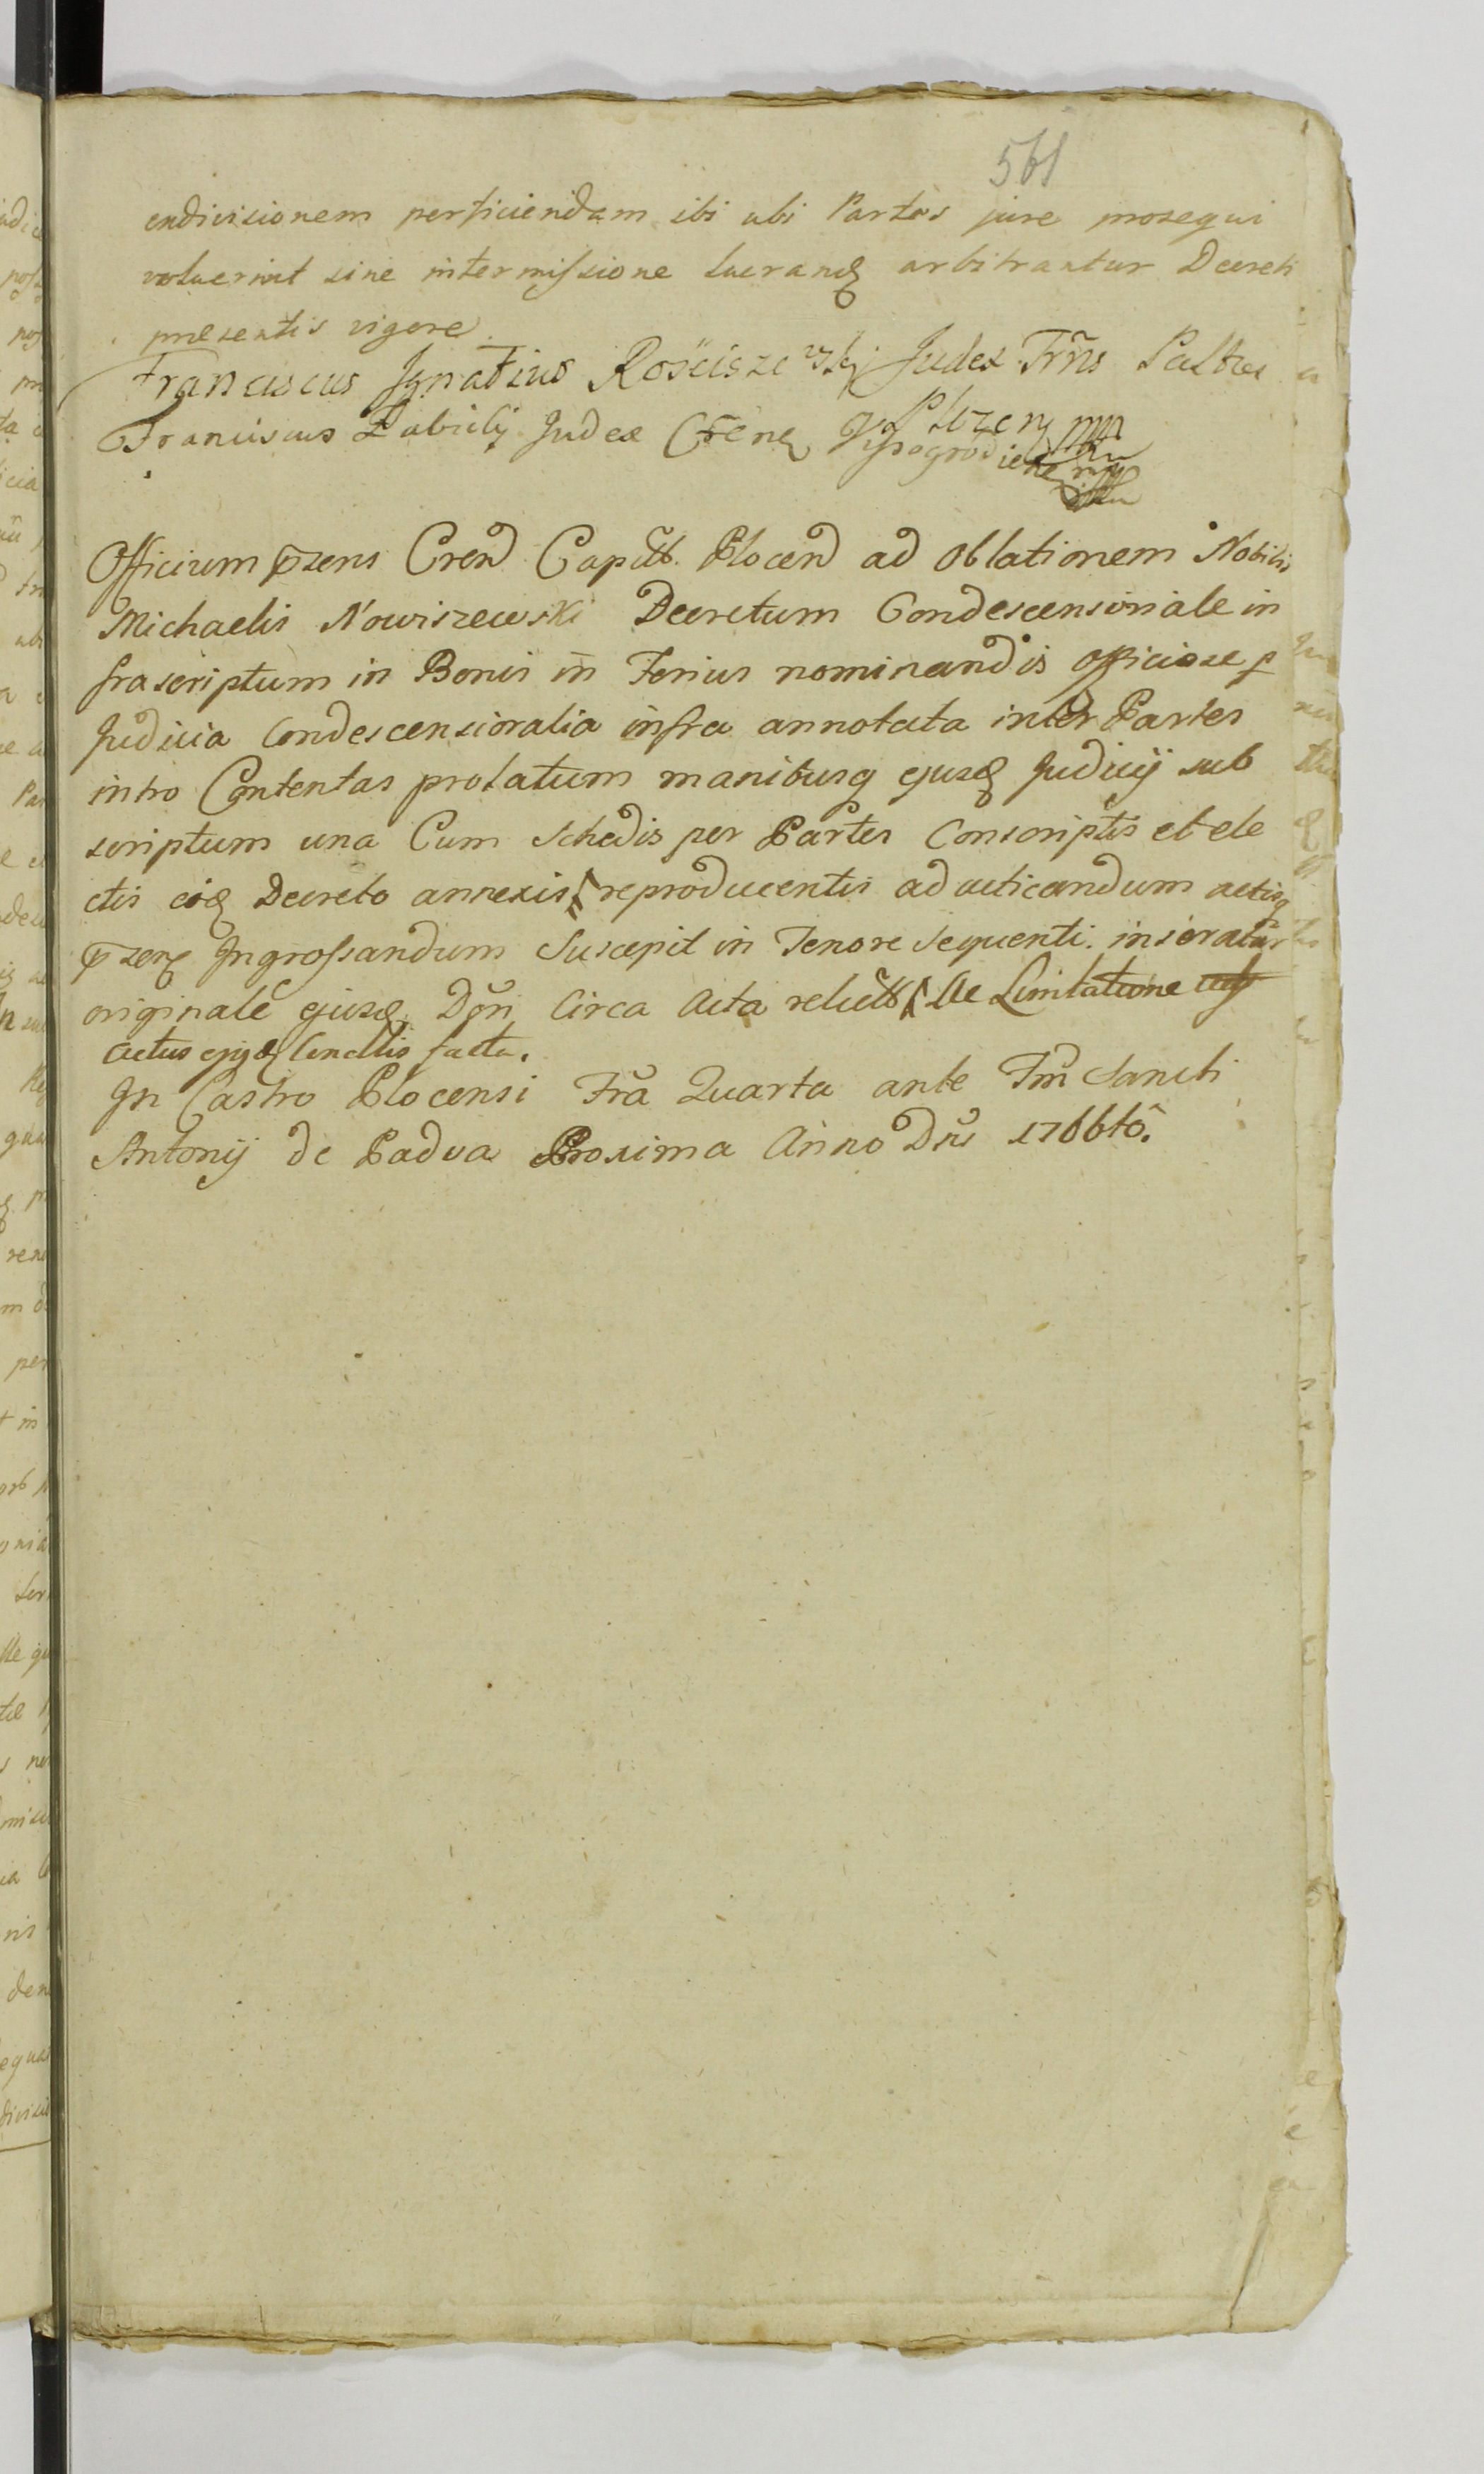 561
endivisionem perficiendam ibi ubi Partes jure prosequi
voluerint sine intermissione arbitrantur Decreti
presentis vigore.
Franciscus Ignatius Rościszewskj Judex Trris Paltae
Plozen mp
Franciscus Judex
Officium pzens Cren Capitt. Plocen ad Oblationem Nobilis
Michaelis Nowiszewski Decretum Condescensionale in
frascriptum in Bonis in Ferius nominandis officiose p
Judicia Condescensionalia infra annotata inter Partes
intro Contentas prolatum manibusq ejusd Judicij sub
scriptum una Cum Schedis per Partes Conscriptis et ele
ctis eid Decreto annexis reproducentis ad acticandum actisq
pzens Ingrossandum Suscepit in Tenore Sequenti. inseratur
originale ejusd Dñi Circa Acta relictt De Limitatione
actus ejusd facta.
In Castro Plocensi Fra Quarta ante Fm Sancti
Antonij de Padua Proxima Anno Dni 1766to.